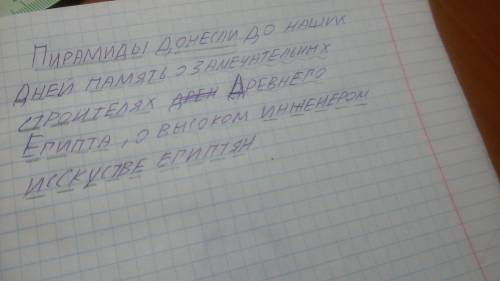 Пирамиды донесли до наших
дней память о замечательных
строителях древ Древнего
Египта, о высоком инженером
исскустве египтян